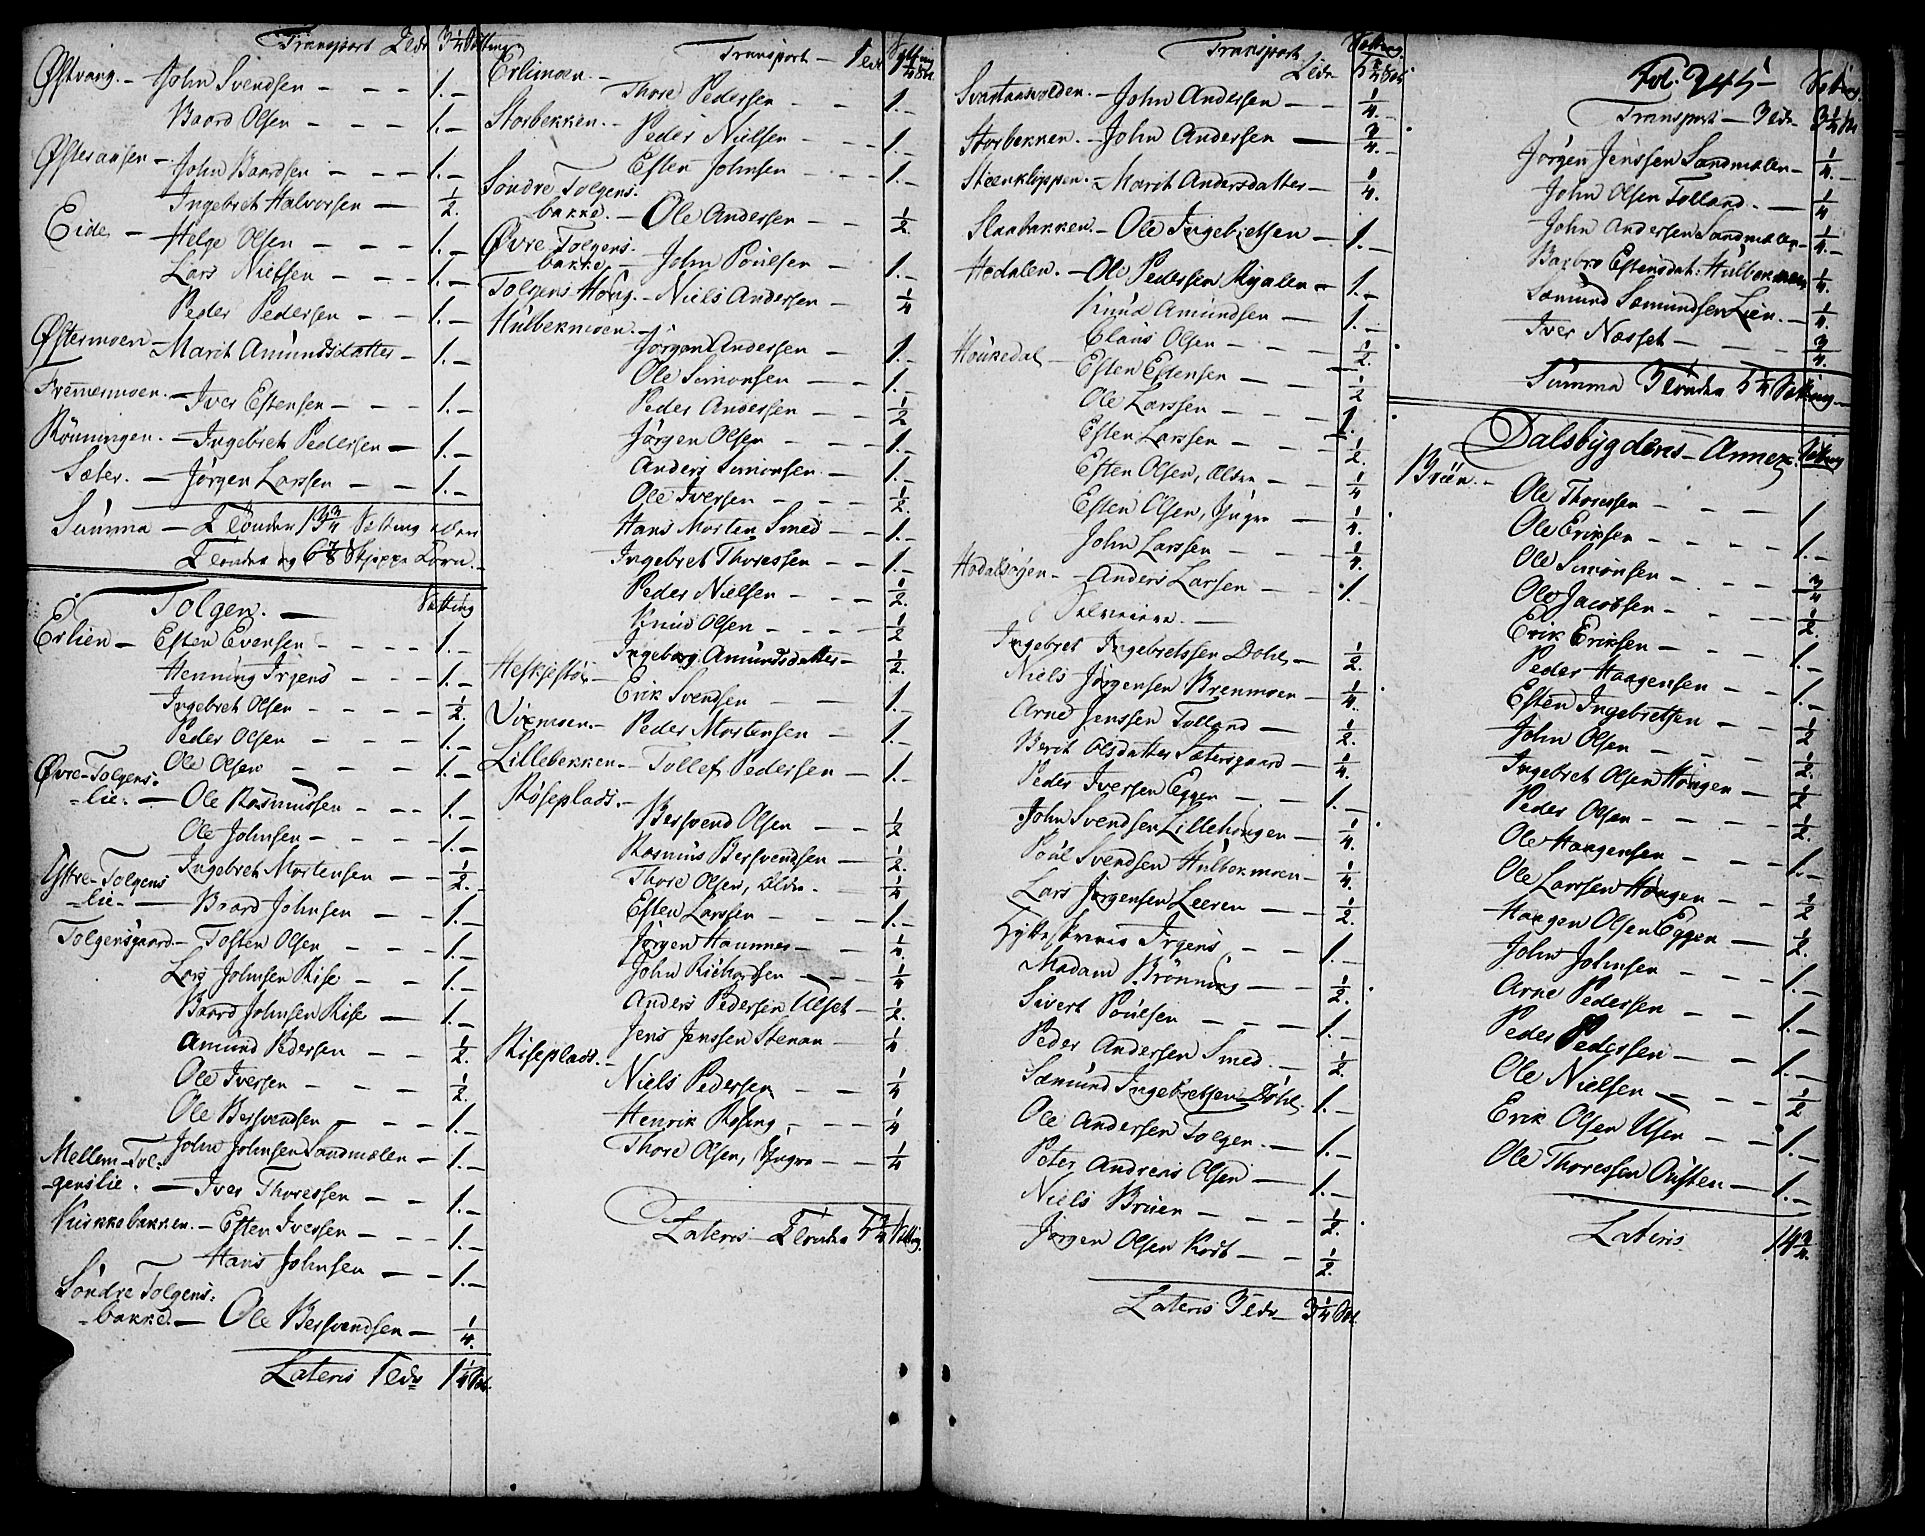 Transport 2 Tdr 3 1/4 Setting
Østvang. — John Svendsen — 1. —
Baard Olsen — 1. —
Østeraasen — John Baardsen — 1. —
Ingebret Halvorsen — 1/2.
Eide — Helge Olsen — 1. —
Lars Nielsen — 1. —
Peder Pedersen — 1. —
Østermoen — Marit Amundsdatter — 1. —
Fremermoen. — Iver Estensen — 1. —
Rönningen. — Ingebret Pedersen — 1. —
Sæter. — Jørgen Larssen — 1. —
Summa — 2 Tönder 13 3/4 Setting eller
2 Tönder og 6 7/8 Skjeppe Korn.
Tolgen. — Setting
Erlien — Esten Evensen — 1. —
Henning Irgens — 1. —
Ingebret Olsen — 1/2.
Peder Olsen — 1. —
Ole Olsen — 1. —
Øvre-Tolgens-
-lie. — Ole Rasmussen — 1. —
Ole Johnsen — 1. —
Ingebret Mortensen — 1/2.
Yttre-Tolgens
-lie. — Baard Johnsen — 1. —
Tolgensgaard — Tosten Olsen — 1. —
Lars Johnsen Rise — 1. —
Baard Johnsen Rise — 1. —
Amund Pedersen — 1/2.
Ole Iversen — 1/2.
Ole Bersvendsen — 1. —
John Johnsen Sandmælen — 1. —
Mellem-Tol-
-genslie. — Iver Thoressen — 1. —
Kirkebakken. — Esten Iversen — 1. —
Hans Johnsen — 1. —
Söndre Tolgens-
-bakke. — Ole Bersvendsen — 1/4.
Lateris 1 Tdr 1 1/4 Set.
Transport — 1 Tdr 1 1/4 Set.
Erlimoen. —
Thore Pedersen — 1. —
Storbekken. — Peder Nielsen — 1. —
Esten Johnsen — 1. —
Söndre Tolgens-
bakke. — Ole Andersen — 1/2.
Øvre Tolgens-
bakke — John Poulsen — 1. —
Tolgens Houg. — Niels Andersen — 1/4
Hulbekmoen. —
Jörgen Andersen — 1. —
Ole Simonsen — 1. —
Peder Andersen — 1/2
Jörgen Olsen — 1. —
Anders Simonsen — 1. —
Ole Iversen — 1/2.
Hans Morten Smed — 1. —
Ingebret Thoressen — 1. —
Peder Nielsen — 1/2.
Knud Olsen — 1/2
Ingeborg Amundsdatter — 1/2.
Hefkjestöe —
Erik Svendsen — 1. —
Viemoen. — Peder Mortensen — 1. —
Lillebekken — Tollef Pedersen — 1. —
Røseplads. —
Bersvend Olsen — 1/2
Rasmus Bersvendsen — 1/2.
Thore Olsen, Eldre. — 1/4
Esten Larssen — 1. —
Jörgen Haumnes — 1/4
John Richardsen — 1/4
Anders Pedersen Ulset — 1/2.
Jens Jenssen Stenan — 1/4
Riseplads. —
Niels Pedersen — 1/4
Henrik Rosing — 1/4
Thore Olsen, Yngre — 1/4
Lateris — 2 Tönder 5 3/4 Setting.
Transport 2 Tdr 5 3/4 Set.
Svartaasvolden. — John Andersen — 1/4.
Storbekken. — John Andersen — 3/4.
Steenklippen. — Marit Andersdatter — 1/4.
Slaabakken. — Ole Ingebretsen — 1. —
Hodalen. — Ole Pedersen Nyalen — 1. —
Knud Amundsen — 1. —
Claus Olsen — 1/2.
Houkedal — Esten Estensen — 1/2
Ole Larssen — 1.
Esten Larssen — 1/2.
Esten Olsen, Eldre — 1/4
Esten Olsen, Yngre — 1/4.
John Larssen — 1/4.
Hodalsöjen — Anders Larsen — 1. —
Ingebret Ingebretssen Dohl — 1/2.
Niels Jörgensen Brenmoen — 1/4.
Arne Jenssen Tolland — 1/2.
Berit Olsdatter Sætersgaard — 1/4.
Peder Iversen Eggen — 1. —
John Svendsen Lillehougen — 1/4.
Poul Svendsen Hulbekmoen — 1/4.
Lars Jörgensen Leeren — 1/2.
Hytteskriver Irgens — 1. —
Madam Brönning — 1/2.
Sivert Poulsen — 1. —
Peder Andersen Smed. — 1/2
Sæmund Ingebretsen Döhl. 1. —
Ole Andersen Tolgen. — 1. —
Peter Andreas Olsen — 1. —
Niels Bruen — 1/2.
Jörgen Olsen Kodt — 1/2.
Lateris 3 Tdr 3 1/4 Set.
Fol. 245
Setting.
Transport — 3 Tdr 3 1/4 Set.
Jörgen Jenssen Sandmælen — 1/4. —
John Olsen Tolland. — 1/4
John Andersen Sandmælen — 1/4.
Barbro Estensdat: Hulbekmoen 1/4.
Sæmund Sæmundsen Lien. — 1/4.
Iver Næsset — 3/4.
Summa 3 Tönder 5 1/4 Setting —
Dalsbygdens — Annex. Setting
Bröen. —
Ole Thoressen — 1
Ole Eriksen — 1. —
Ole Simonsen — 3/4
Ole Jacobsen — 1/2
Erik Eriksen — 1. —
Peder Haagensen — 1. —
Esten Ingebretsen — 1/2
John Olsen — 1/2.
Ingebret Olsen Hougen — 1/2
Peder Olsen — 1/2.
Ole Haagensen — 1. —
Ole Larssen Hougen — 1/2
Haagen Olsen Eggen — 1/2.
John Johnsen — 1. —
Arne Pedersen — 1. —
Peder Pedersen — 1. —
Ole Nielsen — 1/2
Erik Olsen Usen — 1. —
Ole Thoressen Ousten — 1. —
Lateris 14 3/4.